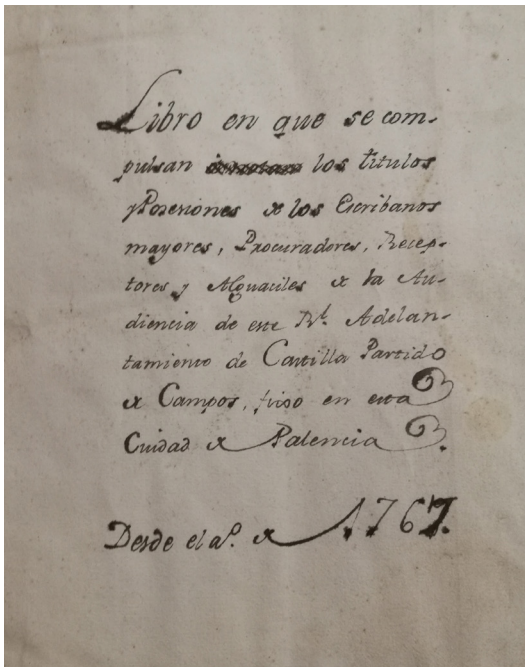 Libro en que se com-
pulsan los titulos
y Poseciones de los Escribanos
mayores, Procuradores, Recep-
tores y Alguaciles de la Au-
diencia de este Rl. Adelan-
tamiento de Castilla Partido
de Campos, fixo en esta
Cuidad de Palencia.
Desde el aº. de 1767.